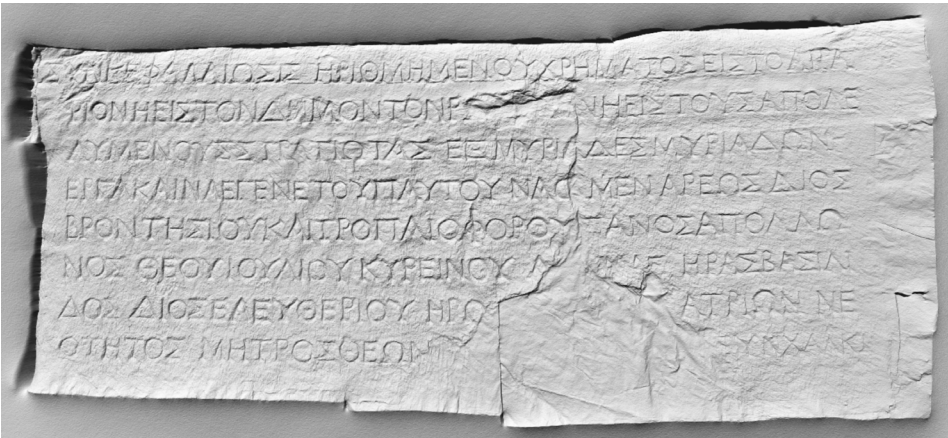 ΣΥΝΚΕΦΑΛΑΙΩΣΙΣ ΗΡΙΘΜΗΜΕΝΟΥΧΡΗΜΑΤΟΣΕΙΣΤΟΑΙΡΑ
ΡΙΟΝΗΕΙΣΤΟΝΔΗΜΟΝΤΟΝΡ ΝΗΕΙΣΤΟΥΣΑΠΟΛΕ
ΛΥΜΕΝΟΥΣΣΤΡΑΤΙΩΤΑΣ ΕΞΜΥΡΙΑΔΕΣΜΥΡΙΑΔΩΝ
ΕΡΓΑΚΑΙΝΑΕΓΕΝΕΤΟΥΠΑΥΤΟΥ ΝΑΟΙ ΜΕΝ ΑΡΕΩΣ ΔΙΟΣ
ΒΡΟΝΤΗΣΙΟΥΚΑΙΤΡΟΠΑΙΟΦΟΡΟΥ ΠΑΝΟΣΑΠΟΛΛΩ
ΝΟΣ ΘΕΟΥΙΟΥΛΙΟΥ ΚΥΡΕΙΝΟΥ ΗΡΑΣΒΑΣΙΛΙ
ΔΟΣ ΔΙΟΣΕΛΕΥΘΕΡΙΟΥ ΗΡΩ ΑΤΡΙΩΝ ΝΕ
ΟΤΗΤΟΣ ΜΗΤΡΟΣΘΕΩΝ ΣΥΝΧΑΛΚΙ